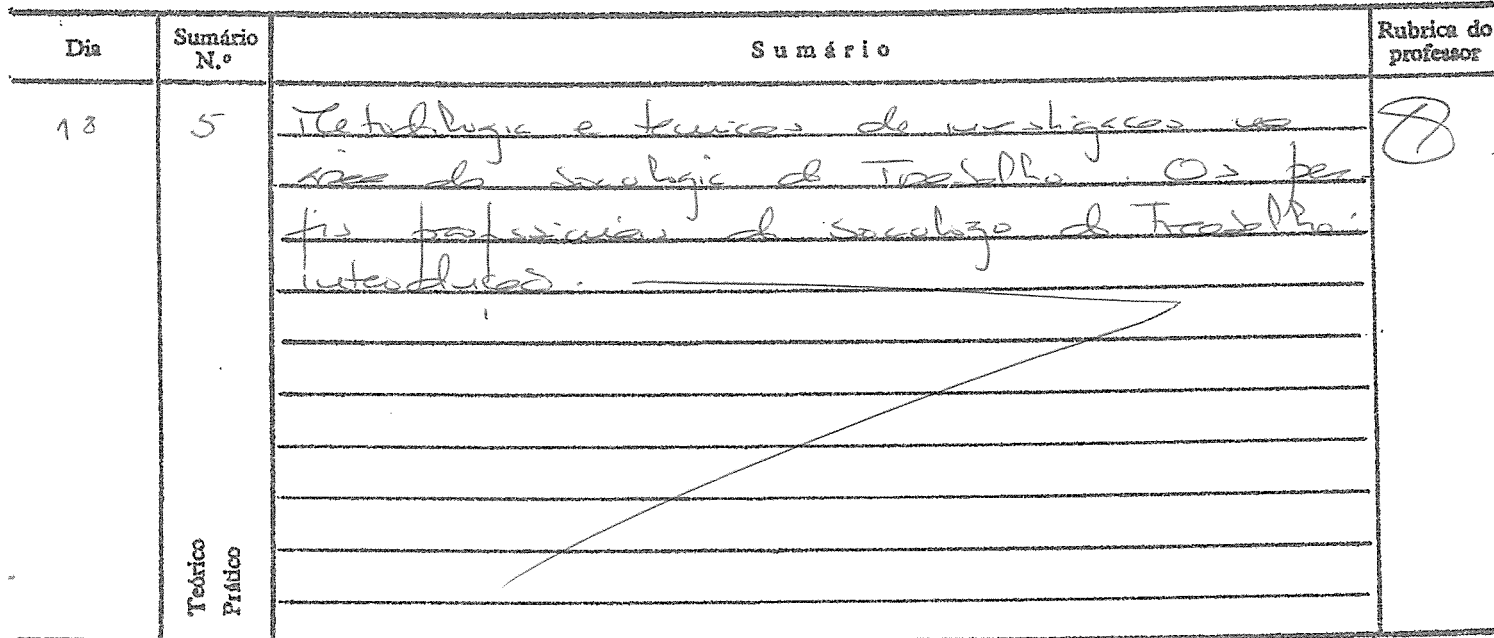 Dia
Sumário N.º
Sumário
Rubrica do professor
13
5
Metodologia e tecnicas de investigação na
área da sociologia do Trabalho. Os per-
fis profissionais do sociologo do Trabalho:
introdução.
Teórico
Prático